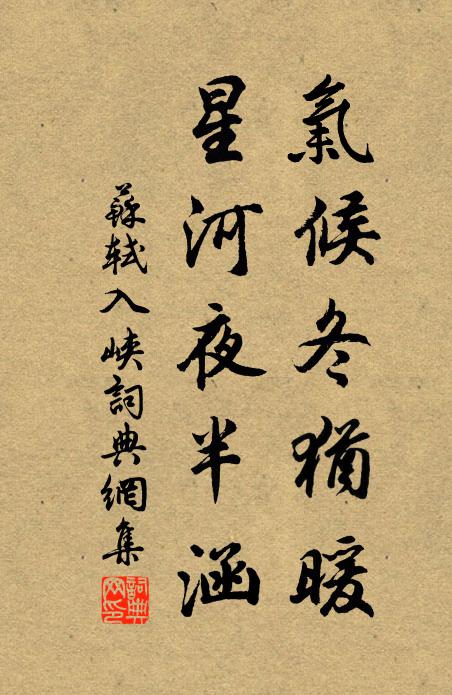 氣候冬猶暖
星河夜半涵
蘇軾入峽詞典網集
詞典網印